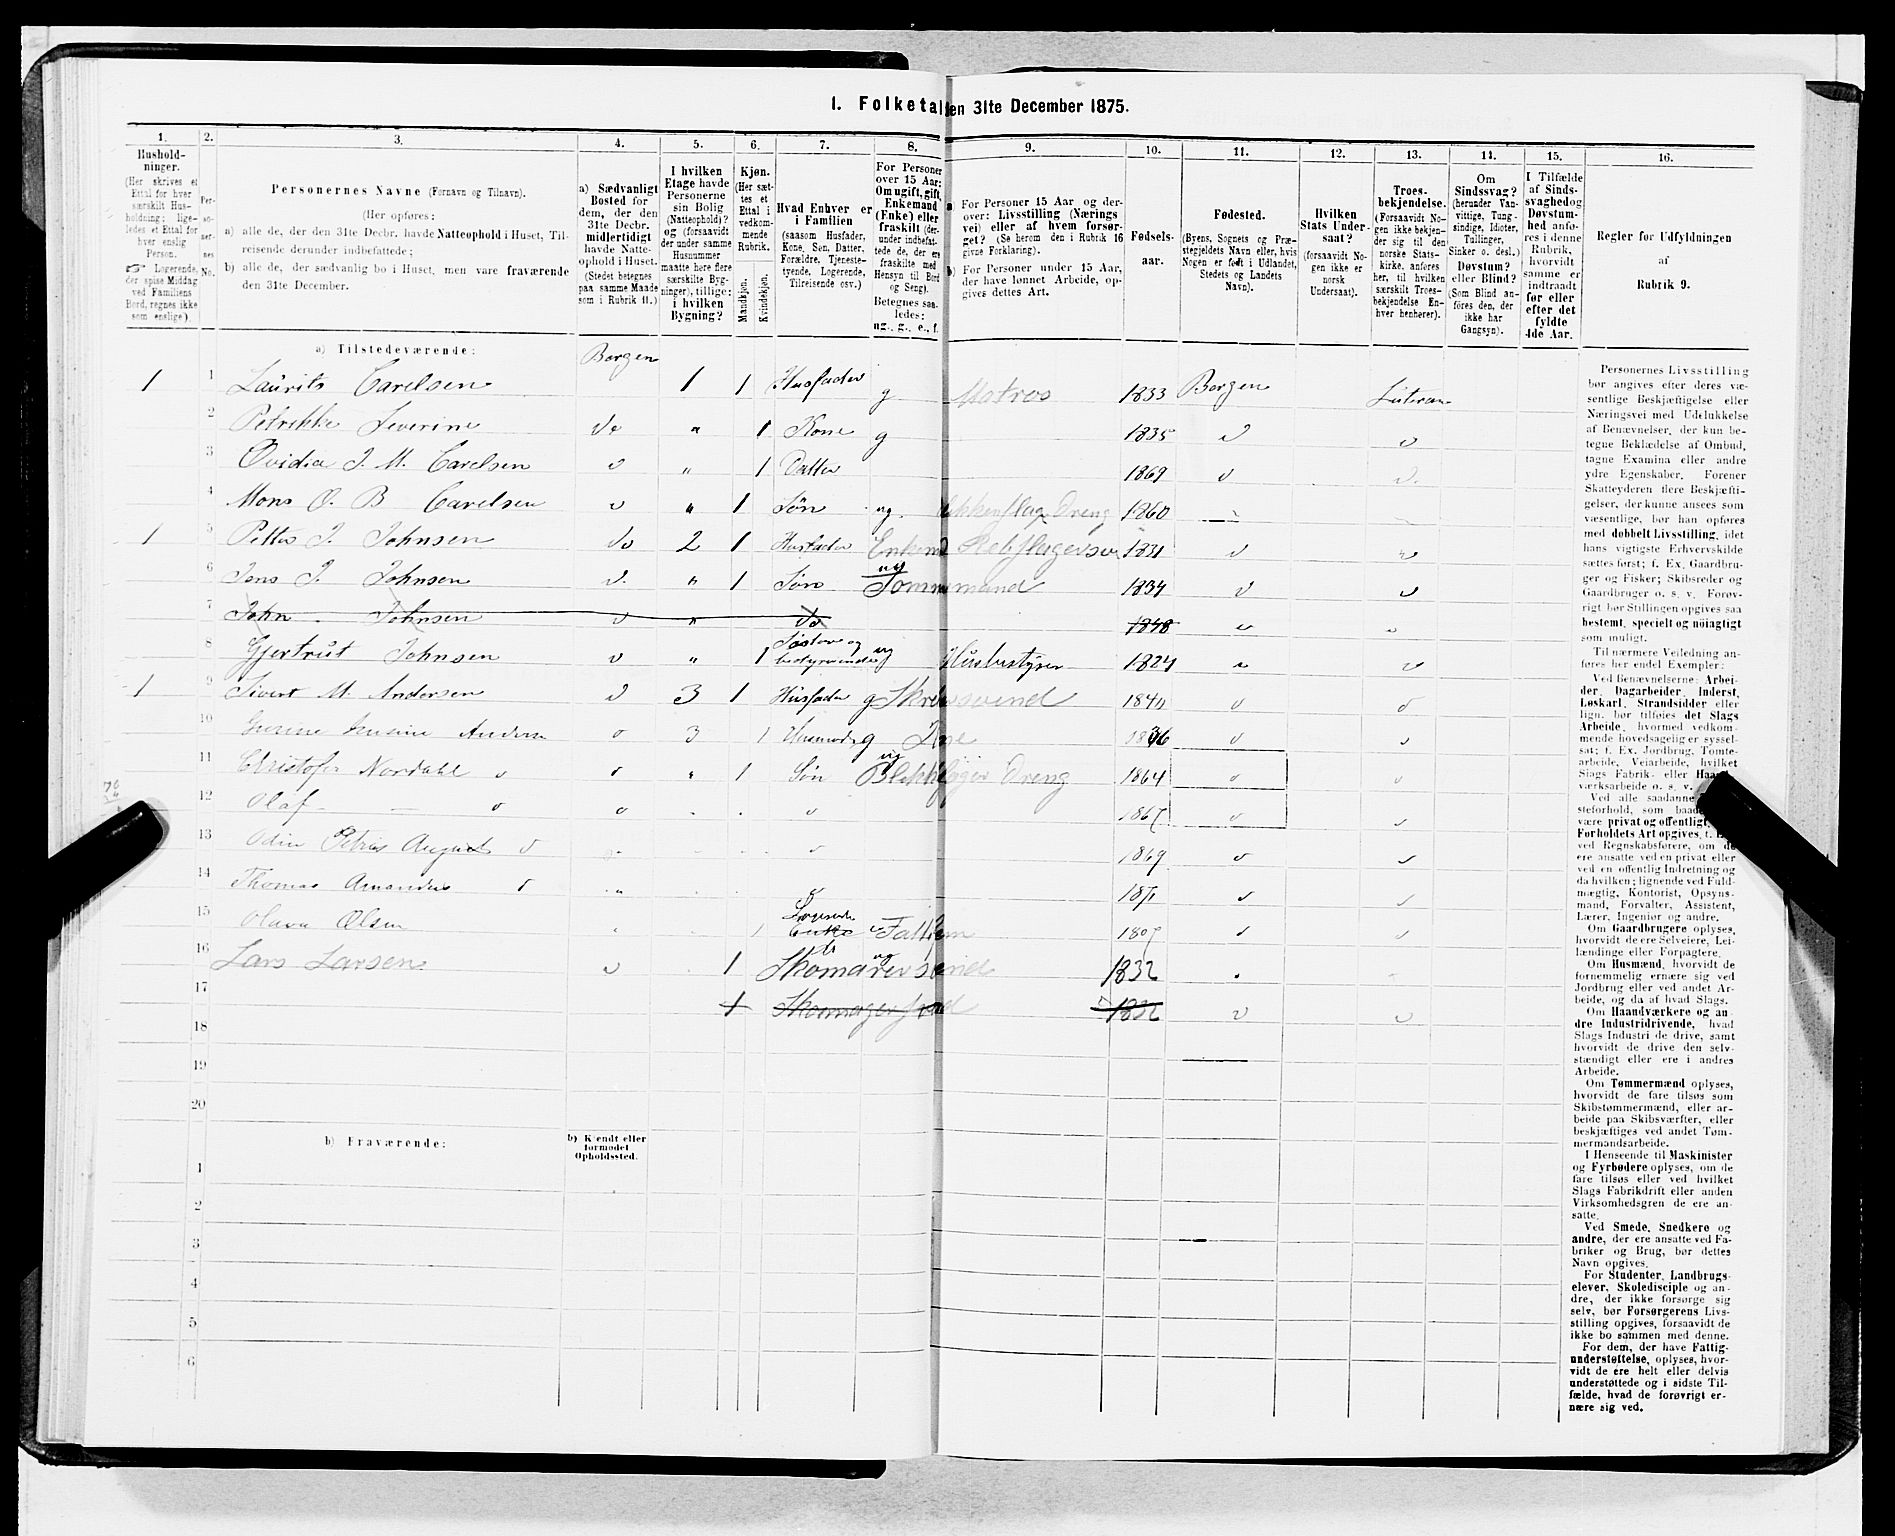 I. Folketal den 31te December 1875.
1. 2. 3. 4. 5. 6. 7. 8. 9. 10. 11. 12. 13. 14. 15. 16.
Hushold-
ninger.
(Her skrives et
Ettal for hver
særskilt Hus-
holdning; lige-
ledes et Ettal for
hver enslig
Person.
☞ Logerende,
der spise Middag
ved Familiens
Bord, regnes ikke
som enslige).
Per-
so-
ner-
nes
No.
Personernes Navne (Fornavn og Tilnavn).
(Her opføres:
a) alle de, der den 31te Decbr. havde Natteophold i Huset, Til-
reisende derunder indbefattede;
b) alle de, der sædvanlig bo i Huset, men vare fraværende
den 31te December.
a) Sædvanligt
Bosted for
dem, der den
31te Decbr.
midlertidigt
havde Natte-
ophold i Huset.
(Stedet betegnes
paa samme Maade
som i Rubrik 11.)
I hvilken
Etage havde
Personerne
sin Bolig
(Natteophold)?
og (forsaavidt
der under samme
Husnummer
maatte høre flere
særskilte Byg-
ninger), tillige:
i hvilken
Bygning?
Kjøn.
(Her sæt-
tes et
Ettal i
vedkom-
mende
Rubrik.
Mandkjøn.
Kvindekjøn.
Hvad Enhver er
i Familien
(saasom Husfader,
Kone, Søn, Datter,
Forældre, Tjeneste-
tyende, Logerende,
Tilreisende osv.)
For Personer
over 15 Aar:
Om ugift, gift,
Enkemand
(Enke) eller
fraskilt (der-
under indbefat-
tede de, der ere
fraskilte med
Hensyn til Bord
og Seng).
Betegnes saa-
ledes:
ug., g., e., f.
a For Personer 15 Aar og der-
over: Livsstilling (Nærings
vei) eller af hvem forsør-
get? (Se herom den i Rubrik 16
givne Forklaring).
b For Personer under 15 Aar,
der have lønnet Arbeide, op-
gives dettes Art.
Fødsels-
aar.
Fødested.
(Byens, Sognets og Præ-
stegjeldets Navn eller, hvis
Nogen er født i Udlandet,
Stedets og Landets
Navn).
Hvilken
Stats Under-
saat?
(forsaavidt No-
gen ikke er
norsk
Undersaat).
Troes-
bekjendelse.
(Forsaavidt No-
gen ikke bekjen-
der sig til den
norske Stats-
kirke, anføres
her, til hvilken
særskilt Troes-
bekjendelse En-
hver henhører).
Om
Sindssvag?
(herunder Van-
vittige, Tung-
sindige, Idioter,
Tullinger,
Sinker o. desl.)
Døvstum?
eller Blind?
(Som Blind an-
føres den, der
ikke har
Gangsyn).
I Tilfælde
af Sinds-
svaghed og
Døvstum-
hed anfø-
res i denne
Rubrik,
hvorvidt
samme er
indtraadt
før eller
efter det
fyldte
4de Aar.
Regler for Udfyldningen
af
Rubrik 9.
a) Tilstedeværende:
Bergen
1 1 Laurits Carelsen 1 1 Husfader g Matros 1833 Bergen Luteran
2 Petrikke Severine do " 1 Kone g 1835
3 Ovidia J. M. Carelsen " 1 Datter 1869
4 Mons O. B Carelsen " 1 Søn ug Dreng 1860
1 5 Petter J. Johnsen do 2 1 Husfader Enkem Rebslagersv 1831
6 Jens J. Johnsen " 1 Søn ug Tømmermand 1834
7 John Johnsen " do 1848
8 Gjertrut Johnsen " 1 Søster og bestyrerinde ug Husbestyrer 1824
1 9 Sivert M. Andersen 3 1 Husfader g Skrædsvend 1840
10 3 1 Husmoder g 1836
11 Christofer Nordahl " 1 Søn ug Blikslager Dreng 1864
12 Olaf — 1867
13 Odin Petrus August 1869
14 Thomas Amandus " 1871
15 Olava Olsen 1 Logerende Enke Fattigm 1807
16 Lars Larsen 1 ug Skomagersvend 1832
17 1 Skomagersvend 1832
18
19
20
b) Fraværende:
b) Kjendt eller
formodet
Opholdssted.
1
2
3
4
5
6
Personernes Livsstilling
bør angives efter deres væ-
sentlige Beskjæftigelse eller
Næringsvei med Udelukkelse
af Benævnelser, der kun be-
tegne Beklædelse af Ombud,
tagne Examina eller andre
ydre Egenskaber. Forener
Skatteyderen flere Beskjæfti-
gelser, der kunne ansees som
væsentlige, bør han opføres
med dobbelt Livsstilling, idet
hans vigtigste Erhvervskilde
sættes først; f. Ex. Gaardbru-
ger og Fisker; Skibsreder og
Gaardbruger o. s. v. Forøv-
rigt bør Stillingen opgives saa
bestemt, specielt og nöiagtigt
som muligt.
Til nærmere Veiledning an-
føres her endel Exempler:
Ved Benævnelserne: Arbei-
der, Dagarbeider, Inderst,
Løskarl, Strandsidder eller
lign. bør tilføies det Slags
Arbeide, hvormed vedkom-
mende hovedsagelig er syssel-
sat; f. Ex. Jordbrug, Tomte-
arbeide, Veiarbeide, hvilket
Slags Fabrik- eller Haand-
værksarbeide o. s. v.
Ved alle saadanne
steforhold, som baade
være privat og offentligt,
Forholdets Art opgives, t.
ved Regnskabsførere, om de
ere ansatte ved en privat eller
ved en offentlig Indretning og
da hvilken; lignende ved Fuld-
mægtig, Kontorist, Opsyns-
mand, Forvalter, Assistent,
Lærer, Ingeniør og andre.
Om Gaardbrugere oplyses,
hvorvidt de ere Selveiere, Lei-
lændinge eller Forpagtere.
Om Husmænd, hvorvidt de
fornemmelig ernære sig ved
Jordbrug eller ved andet Ar-
beide, og da af hvad Slags.
Om Haandværkere og an-
dre Industridrivende, hvad
Slags Industri de drive, samt
hvorvidt de drive den selv-
stændigt eller ere i andres
Arbeide.
Om Tømmermænd oplyses,
hvorvidt de fare tilsøs som
Skibstømmermænd, eller ar-
beide paa Skibsværfter, eller
beskjæftiges ved andet Tøm-
mermandsarbeide.
I Henseende til Maskinister
og Fyrbødere oplyses, om de
fare tilsøs eller ved hvilket
Slags Fabrikdrift eller anden
Virksomhedsgren de ere an-
satte.
Ved Smede, Snedkere og
andre, der ere ansatte ved Fa-
briker og Brug, bør dettes
Navn opgives.
For Studenter, Landbrugs-
elever, Skoledisciple og an-
dre, der ikke forsørge sig
selv, bør Forsørgerens Livs-
stilling opgives, forsaavidt de
ikke bo sammen med denne.
For dem, der have Fattig-
understøttelse, oplyses, hvor-
vidt de ere helt eller delvis
understøttede og i sidste Til-
fælde, hvad de forøvrigt er-
nære sig ved.